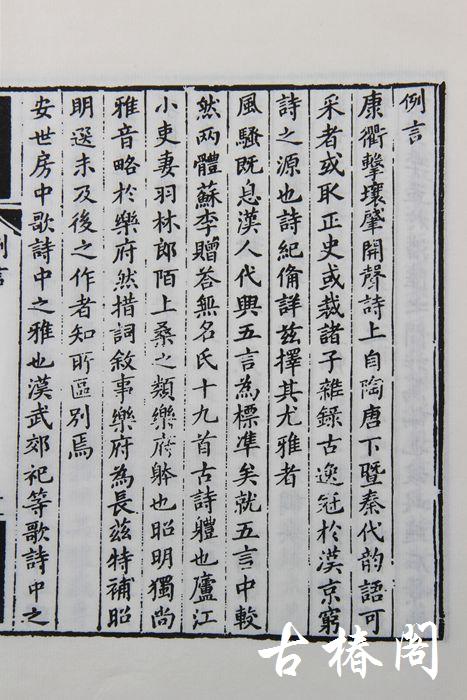 例言
康衢擊壤肇開聲詩上自陶唐下暨秦代韵語可
采者或取正史或裁諸子雜錄古逸冠於漢京窮
詩之源也詩紀俻詳兹擇其尤雅者
風騷既息漢人代興五言為標準矣就五言中較
然兩體蘇李贈荅無名氏十九首古詩軆也廬江
小吏妻羽林郎陌上桑之類樂府躰也昭明獨尚
雅音略於樂府然措詞敘事樂府為長兹特補昭
明選未及後之作者知所區别焉
安世房中歌詩中之雅也漢武郊祀等歌詩中之
例言
古椿閣